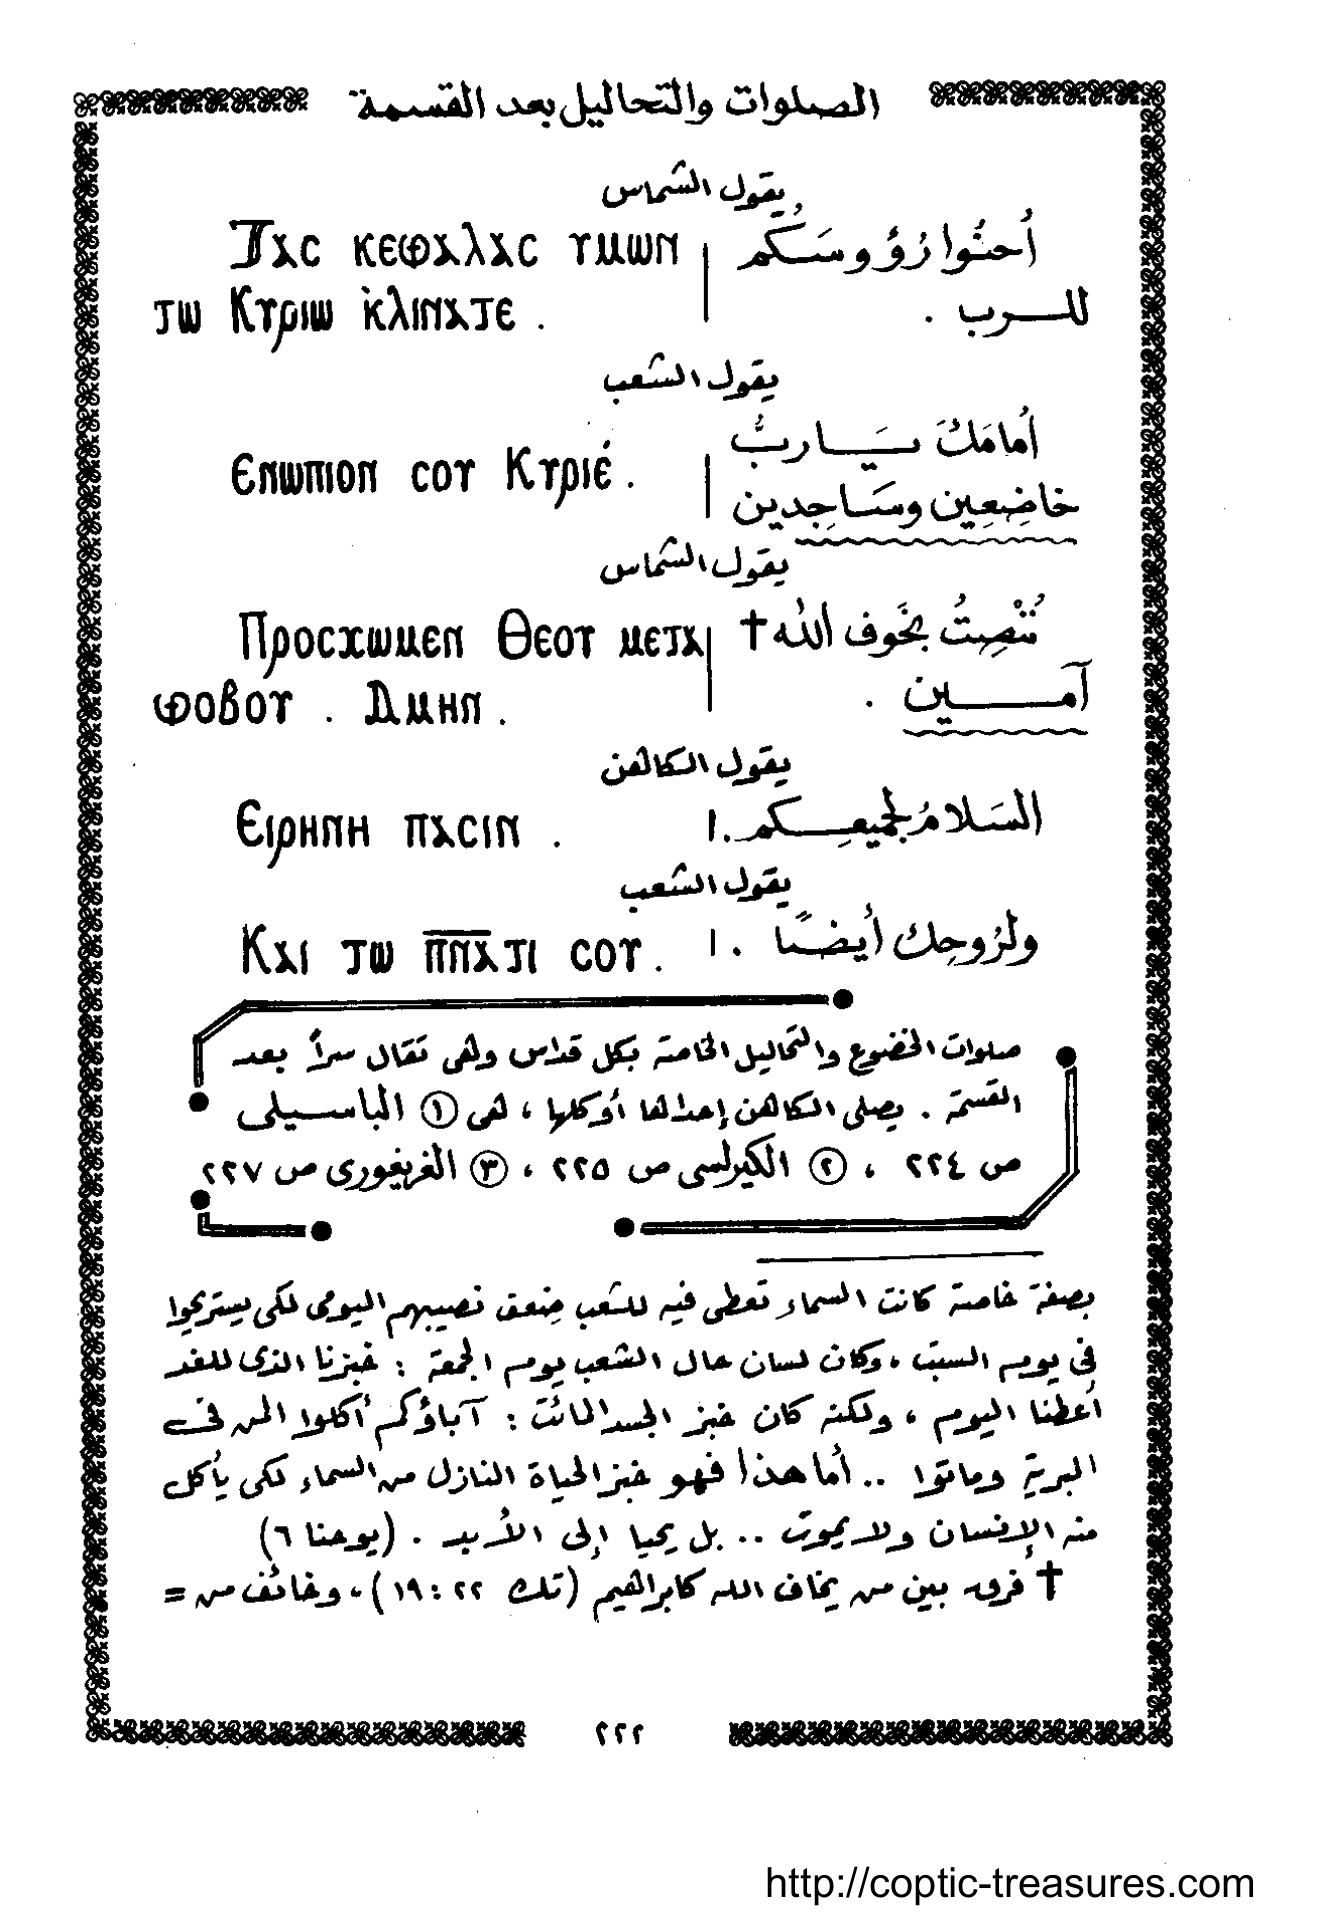 الصلوات والتحاليل بعد القسمة
يقول الشماس
أحنُوا رُؤوسَكُم
للـرب .
Ⲧⲁⲥ ⲕⲉⲫⲁⲗⲁⲥ ⲩⲙⲱⲛ
ⲧⲱ Ⲕⲩⲣⲓⲱ ⲕ̀ⲗⲓⲛⲁⲧⲉ .
يقول الشعب
أمامَكَ يَـاربُّ
خاضِعِين وسَاجِدين
Ⲉⲛⲱⲡⲓⲟⲛ ⲥⲟⲩ Ⲕⲩⲣⲓⲉ̀ .
يقول الشماس
نُنْصِتُ بخَوف الله †
آمـين .
Ⲡⲣⲟⲥⲭⲱⲙⲉⲛ Ⲑⲉⲟⲩ ⲙⲉⲧⲁ
ⲫⲟⲃⲟⲩ . Ⲁⲙⲏⲛ .
يقول الكاهن
السَلامُ لجميعِـكم .
Ⲉⲓⲣⲏⲛⲏ ⲡⲁⲥⲓⲛ .
يقول الشعب
ولرُوحِك أيضًا .
Ⲕⲁⲓ ⲧⲱ ⲡ̅ⲛ̅ⲁ̅ⲧⲓ ⲥⲟⲩ .
صلوات الخضوع والتحاليل الخاصة بكل قداس وهى تقال سراً بعد
القسمة . يصلى الكاهن إحداها أو كلها ، هى ① الباسـيلى
ص ٢٢٤ ، ② الكيرلسى ص ٢٢٥ ، ③ الغريغورى ص ٢٢٧
بصفة خاصة كانت السماء تعطى فيه للشعب ضعق نصيبهم اليومى لكى يستريحوا
فى يوم السبت ، وكان لسان حال الشعب يوم الجمعة : خبزنا الذى للغد
أعطنا اليوم ، ولكنه كان خبز الجسد المائت : آباؤكم أكلوا المن فى
البرية وماتوا .. أما هذا فهو خبز الحياة النازل من السماء لكى يأكل
منه الإنسان ولا يموت .. بل يحيا إلى الأبد . (يوحنا ٦)
† فرق بين من يخاف الله كابراهيم (تك ٢٢ : ١٩) ، وخائف من =
٢٢٢
http://coptic-treasures.com